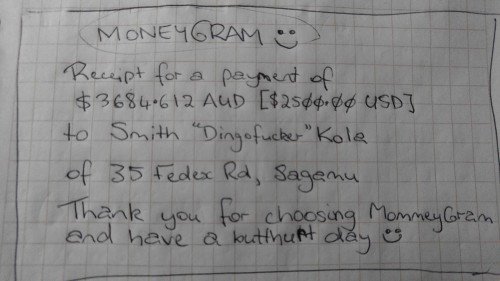 MONEYGRAM
Receipt for a payment of
$3684.612 AUD [$2500.00 USD]
to Smith "Dingofucker" Kole
of 35 Fedex Rd, Sagamu
Thank you for choosing MommeyGram
and have a butthurt day